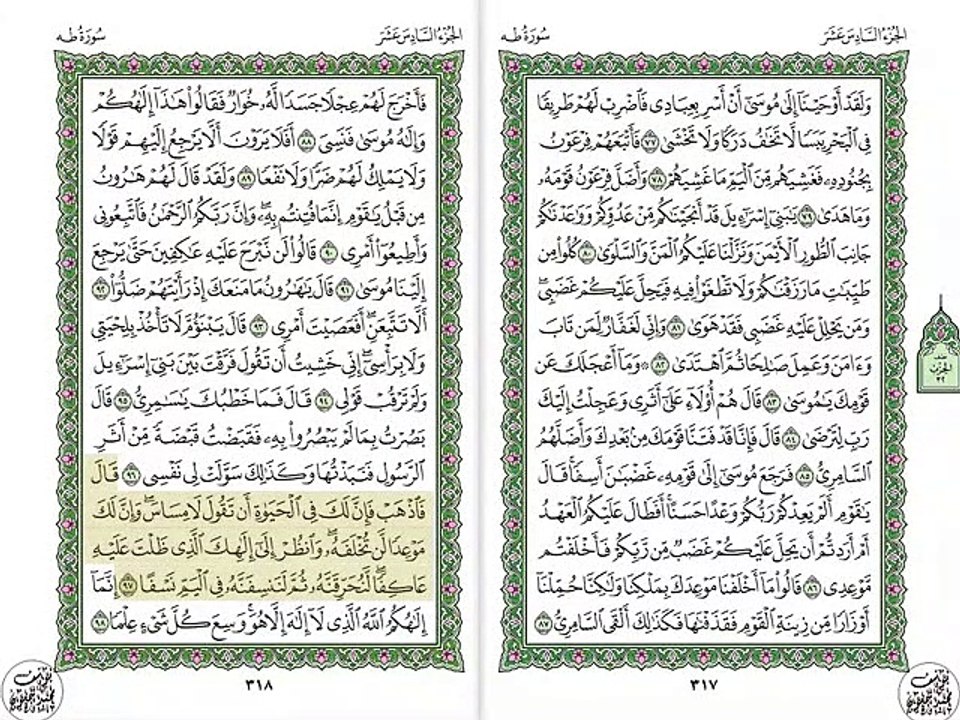 الجزء السادس عشر
سورة طه
وَلَقَدْ أَوْحَيْنَا إِلَىٰ مُوسَىٰ أَنْ أَسْرِ بِعِبَادِي فَاضْرِبْ لَهُمْ طَرِيقًا
فِي الْبَحْرِ يَبَسًا لَّا تَخَٰفُ دَرَكًا وَلَا تَخْشَىٰ ٧٧ فَأَتْبَعَهُمْ فِرْعَوْنُ
بِجُنُودِهِۦ فَغَشِيَهُم مِّنَ الْيَمِّ مَا غَشِيَهُمْ ٧٨ وَأَضَلَّ فِرْعَوْنُ قَوْمَهُۥ
وَمَا هَدَىٰ ٧٩ يَٰبَنِيٓ إِسْرَٰٓءِيلَ قَدْ أَنجَيْنَٰكُم مِّنْ عَدُوِّكُمْ وَوَٰعَدْنَٰكُمْ
جَانِبَ الطُّورِ الْأَيْمَنَ وَنَزَّلْنَا عَلَيْكُمُ الْمَنَّ وَالسَّلْوَىٰ ٨٠ كُلُوا مِن
طَيِّبَٰتِ مَا رَزَقْنَٰكُمْ وَلَا تَطْغَوْا فِيهِ فَيَحِلَّ عَلَيْكُمْ غَضَبِي ۖ
وَمَن يَحْلِلْ عَلَيْهِ غَضَبِي فَقَدْ هَوَىٰ ٨١ وَإِنِّي لَغَفَّارٌ لِّمَن تَابَ
وَءَامَنَ وَعَمِلَ صَٰلِحًا ثُمَّ اهْتَدَىٰ ٨٢ ۞ وَمَآ أَعْجَلَكَ عَن
قَوْمِكَ يَٰمُوسَىٰ ٨٣ قَالَ هُمْ أُو۟لَآءِ عَلَىٰٓ أَثَرِي وَعَجِلْتُ إِلَيْكَ
رَبِّ لِتَرْضَىٰ ٨٤ قَالَ فَإِنَّا قَدْ فَتَنَّا قَوْمَكَ مِنۢ بَعْدِكَ وَأَضَلَّهُمُ
السَّامِرِيُّ ٨٥ فَرَجَعَ مُوسَىٰٓ إِلَىٰ قَوْمِهِۦ غَضْبَٰنَ أَسِفًا ۚ قَالَ
يَٰقَوْمِ أَلَمْ يَعِدْكُمْ رَبُّكُمْ وَعْدًا حَسَنًا ۚ أَفَطَالَ عَلَيْكُمُ الْعَهْدُ
أَمْ أَرَدتُّمْ أَن يَحِلَّ عَلَيْكُمْ غَضَبٌ مِّن رَّبِّكُمْ فَأَخْلَفْتُم
مَّوْعِدِي ٨٦ قَالُوا مَآ أَخْلَفْنَا مَوْعِدَكَ بِمَلْكِنَا وَلَٰكِنَّا حُمِّلْنَآ
أَوْزَارًا مِّن زِينَةِ الْقَوْمِ فَقَذَفْنَٰهَا فَكَذَٰلِكَ أَلْقَى السَّامِرِيُّ ٨٧
٣١٧
الجزء السادس عشر
سورة طه
فَأَخْرَجَ لَهُمْ عِجْلًا جَسَدًا لَّهُۥ خُوَارٌ فَقَالُوا هَٰذَآ إِلَٰهُكُمْ
وَإِلَٰهُ مُوسَىٰ فَنَسِيَ ٨٨ أَفَلَا يَرَوْنَ أَلَّا يَرْجِعُ إِلَيْهِمْ قَوْلًا
وَلَا يَمْلِكُ لَهُمْ ضَرًّا وَلَا نَفْعًا ٨٩ وَلَقَدْ قَالَ لَهُمْ هَٰرُونُ
مِن قَبْلُ يَٰقَوْمِ إِنَّمَا فُتِنتُم بِهِۦ ۖ وَإِنَّ رَبَّكُمُ الرَّحْمَٰنُ فَاتَّبِعُونِي
وَأَطِيعُوٓا أَمْرِي ٩٠ قَالُوا لَن نَّبْرَحَ عَلَيْهِ عَٰكِفِينَ حَتَّىٰ يَرْجِعَ
إِلَيْنَا مُوسَىٰ ٩١ قَالَ يَٰهَٰرُونُ مَا مَنَعَكَ إِذْ رَأَيْتَهُمْ ضَلُّوٓا ٩٢
أَلَّا تَتَّبِعَنِ ۖ أَفَعَصَيْتَ أَمْرِي ٩٣ قَالَ يَبْنَؤُمَّ لَا تَأْخُذْ بِلِحْيَتِي
وَلَا بِرَأْسِيٓ ۖ إِنِّي خَشِيتُ أَن تَقُولَ فَرَّقْتَ بَيْنَ بَنِيٓ إِسْرَٰٓءِيلَ
وَلَمْ تَرْقُبْ قَوْلِي ٩٤ قَالَ فَمَا خَطْبُكَ يَٰسَٰمِرِيُّ ٩٥ قَالَ
بَصُرْتُ بِمَا لَمْ يَبْصُرُوا بِهِۦ فَقَبَضْتُ قَبْضَةً مِّنْ أَثَرِ
الرَّسُولِ فَنَبَذْتُهَا وَكَذَٰلِكَ سَوَّلَتْ لِي نَفْسِي ٩٦ قَالَ
فَاذْهَبْ فَإِنَّ لَكَ فِي الْحَيَوٰةِ أَن تَقُولَ لَا مِسَاسَ ۖ وَإِنَّ لَكَ
مَوْعِدًا لَّن تُخْلَفَهُۥ ۖ وَانظُرْ إِلَىٰٓ إِلَٰهِكَ الَّذِي ظَلْتَ عَلَيْهِ
عَاكِفًا ۖ لَّنُحَرِّقَنَّهُۥ ثُمَّ لَنَنسِفَنَّهُۥ فِي الْيَمِّ نَسْفًا ٩٧ إِنَّمَآ
إِلَٰهُكُمُ اللَّهُ الَّذِي لَآ إِلَٰهَ إِلَّا هُوَ ۚ وَسِعَ كُلَّ شَيْءٍ عِلْمًا ٩٨
٣١٨